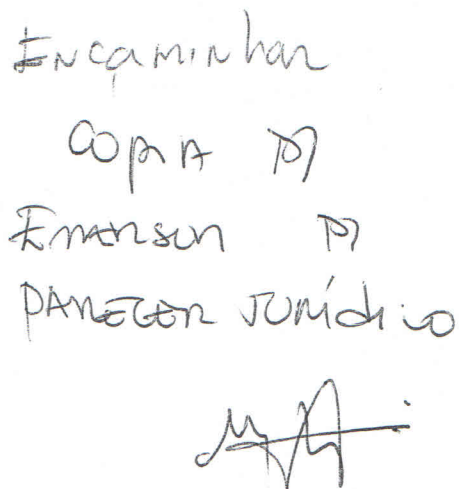 Encaminhar
Copia p/
Emerson p/
PARECER JURídico